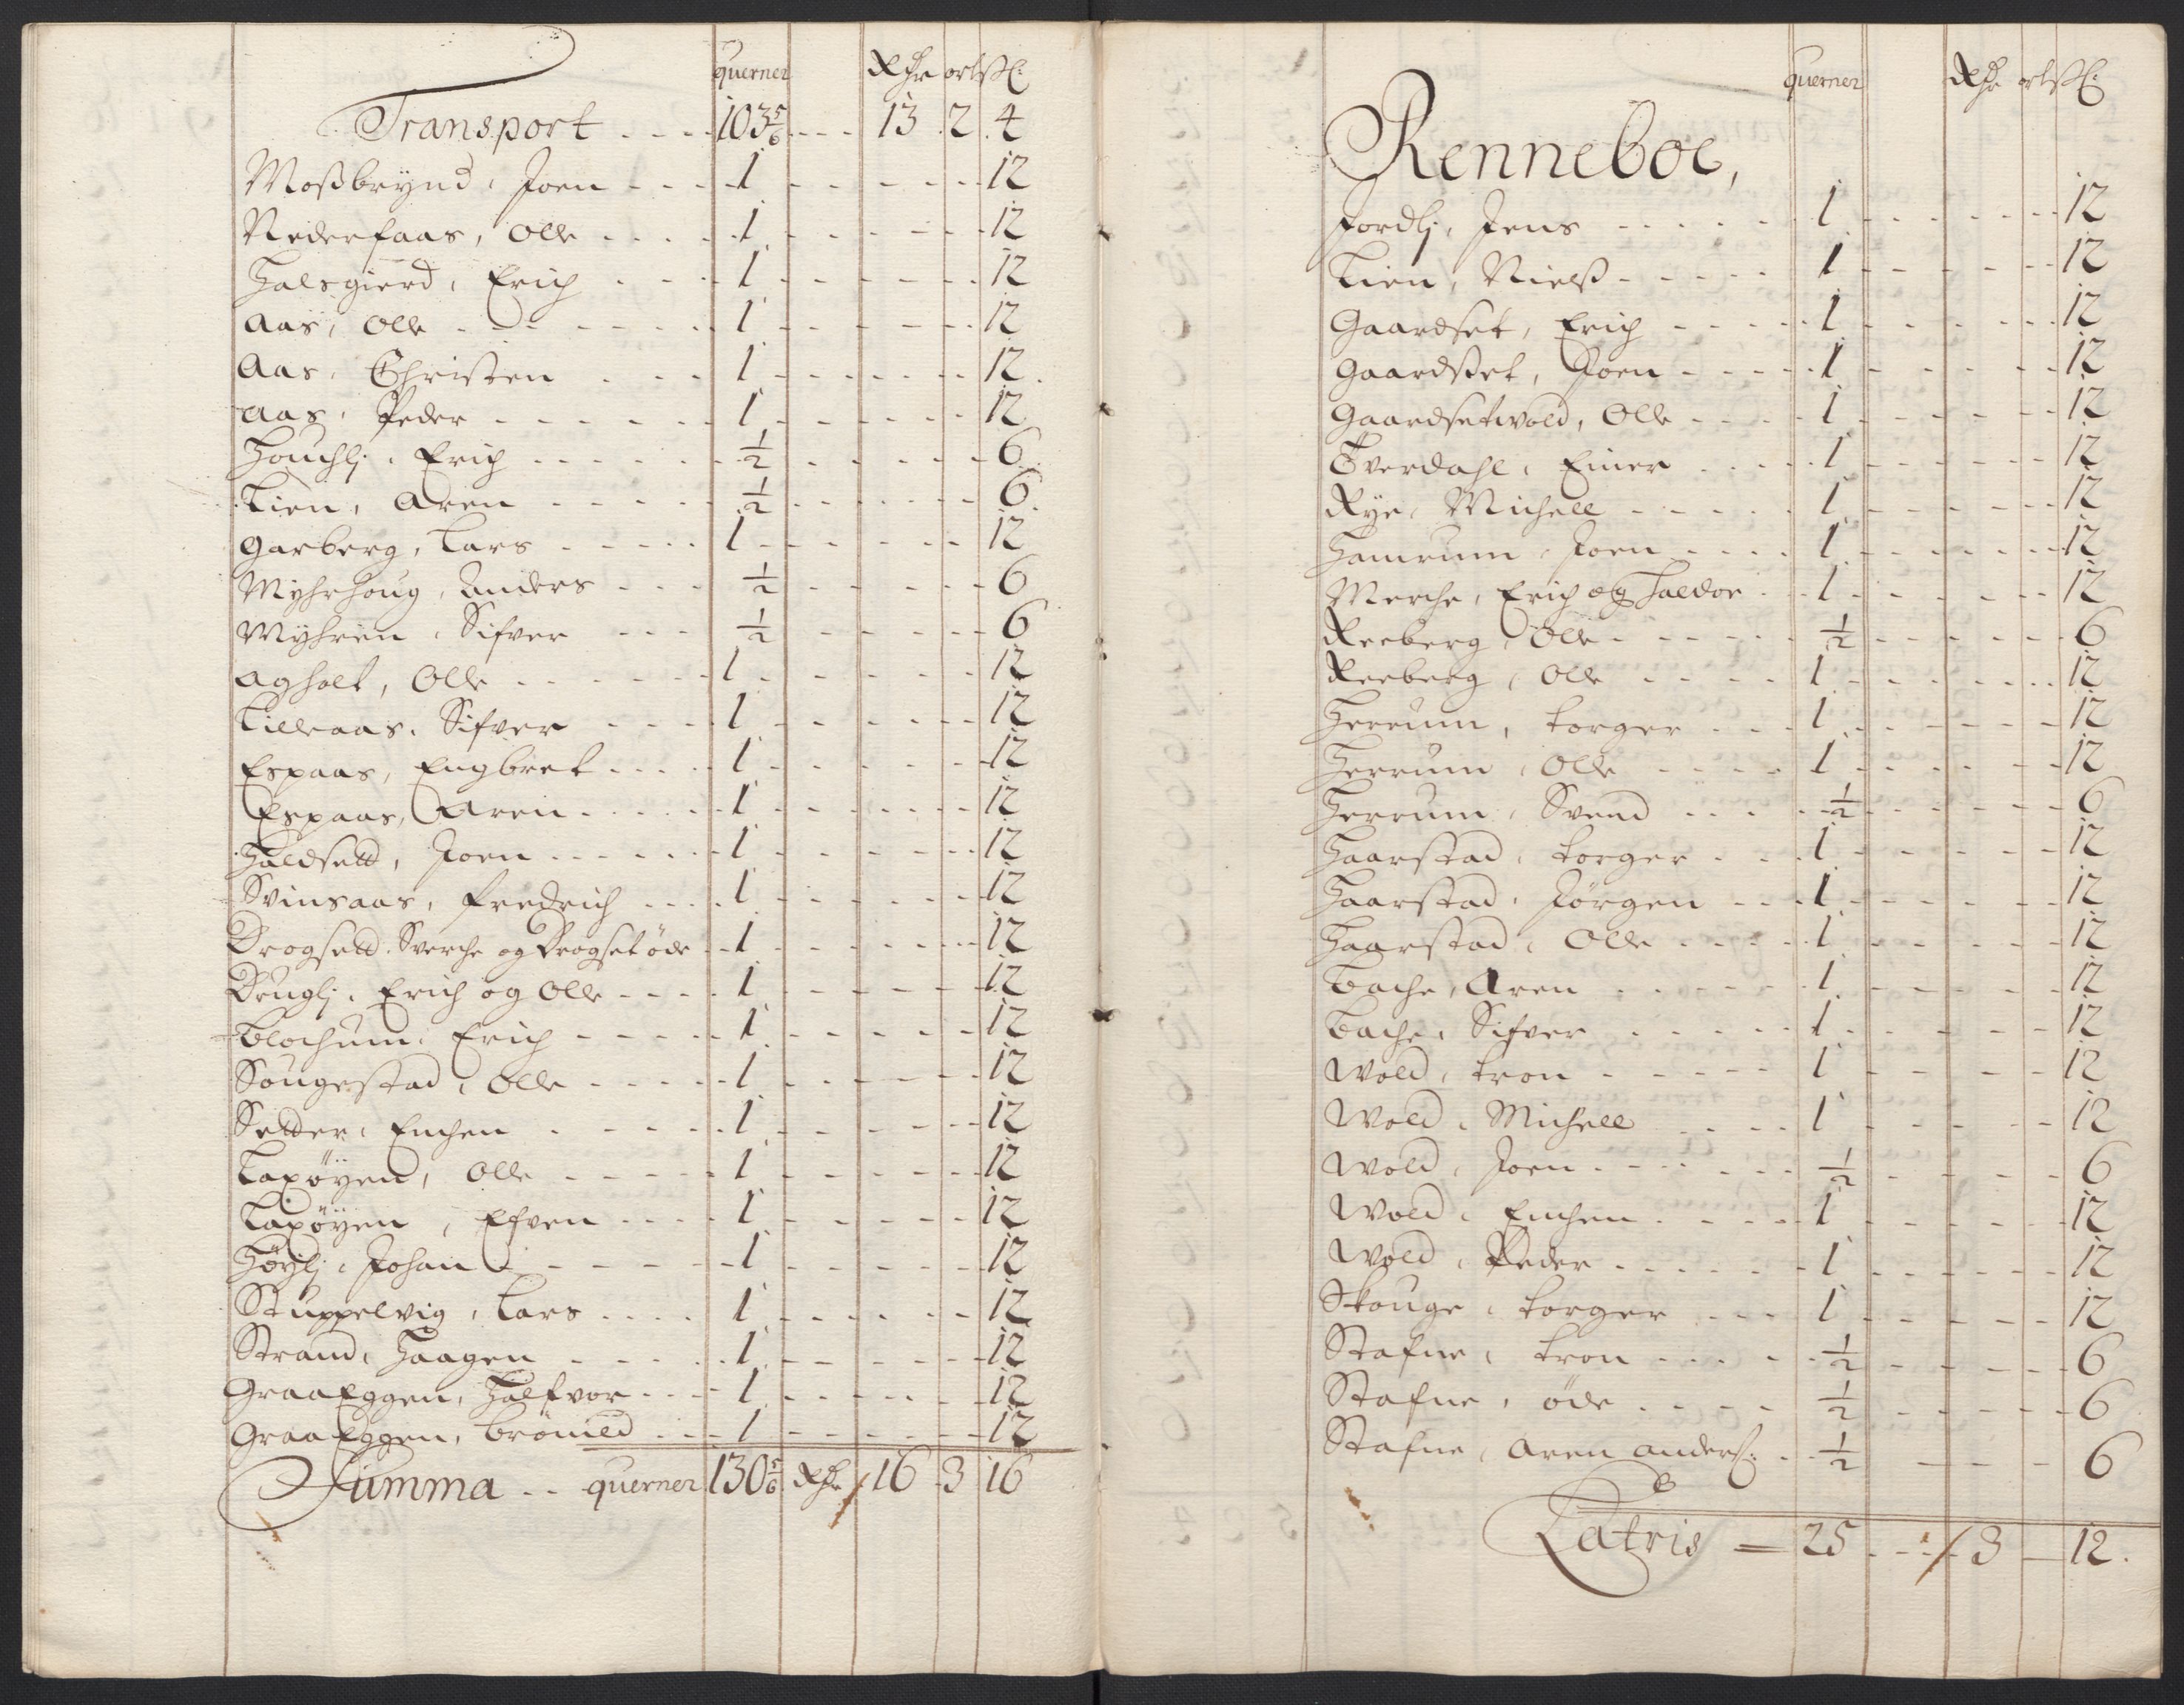 querner Rdr ort ß
Transport 103 5/6 13 2 4
Moßbrynd, Joen 1 12
Nederfaas, Olle 1 12
Halsgierd, Erich 1 12
Aas, Olle 1 12
Aas, Christen 1 12
Aas, Peder 1 12
Houchlj, Erich 1/2 6
Lien, Aren 1/2 6
Garberg, Lars 1 12
Myhrhoug, Anders 1/2 6
Myhren, Sifver 1/2 6
Agholt, Olle 1 12
Lilleaas, Sifver 1 12
Espaas, Engbret 1 12
Espaas, Aren 1 12
Haldsett, Joen 1 12
Svinsaas, Fredrich 1 12
Drogsett, Sverche og Drogset øde 1 12
Druglj, Erich og Olle 1 12
Blochum, Erich 1 12
Sougestad, Olle 1 12
Setter, Emchen 1 12
Laxøyen, Olle 1 12
Laxøyen, Efven 1 12
Høylj, Johan 1 12
Stuppelvig, Lars 1 12
Strand, Haagen 1 12
GraaEggen, Halfvor 1 12
GraaEggen, Brønild 1 12
Summa querner 130 5/6 Rdr 16 3 16
querner Rdr ort ß
Renneboe,
Fordlj, Jens 1 12
Lien, Nielß 1 12
Gaardset, Erich 1 12
Gaardset, Joen 1 12
Gaardsetwold, Olle 1 12
Tverdahl, Einer 1 12
Rye, Michell 1 12
Hamrum, Joen 1 12
Merche, Erich og Haldor 1 12
Reeberg, Olle 1/2 6
Reeberg, Olle 1 12
Herrum, Torger 1 12
Herrum, Olle 1 12
Herrum, Svend 1/2 6
Haarstad, Torger 1 12
Haarstad, Jørgen 1 12
Haarstad, Olle 1 12
Bache, Aren 1 12
Bache, Sifver 1 12
Wold, Tron 1 12
Wold, Michell 1 12
Wold, Joen 1/2 6
Wold, Emchen 1 12
Wold, Peder 1 12
Skouge, Torger 1 12
Stafne, Tron 1/2 6
Stafne, øde 1/2 6
Stafne, Aren Anderß: 1/2 6
Latris 25 3 12